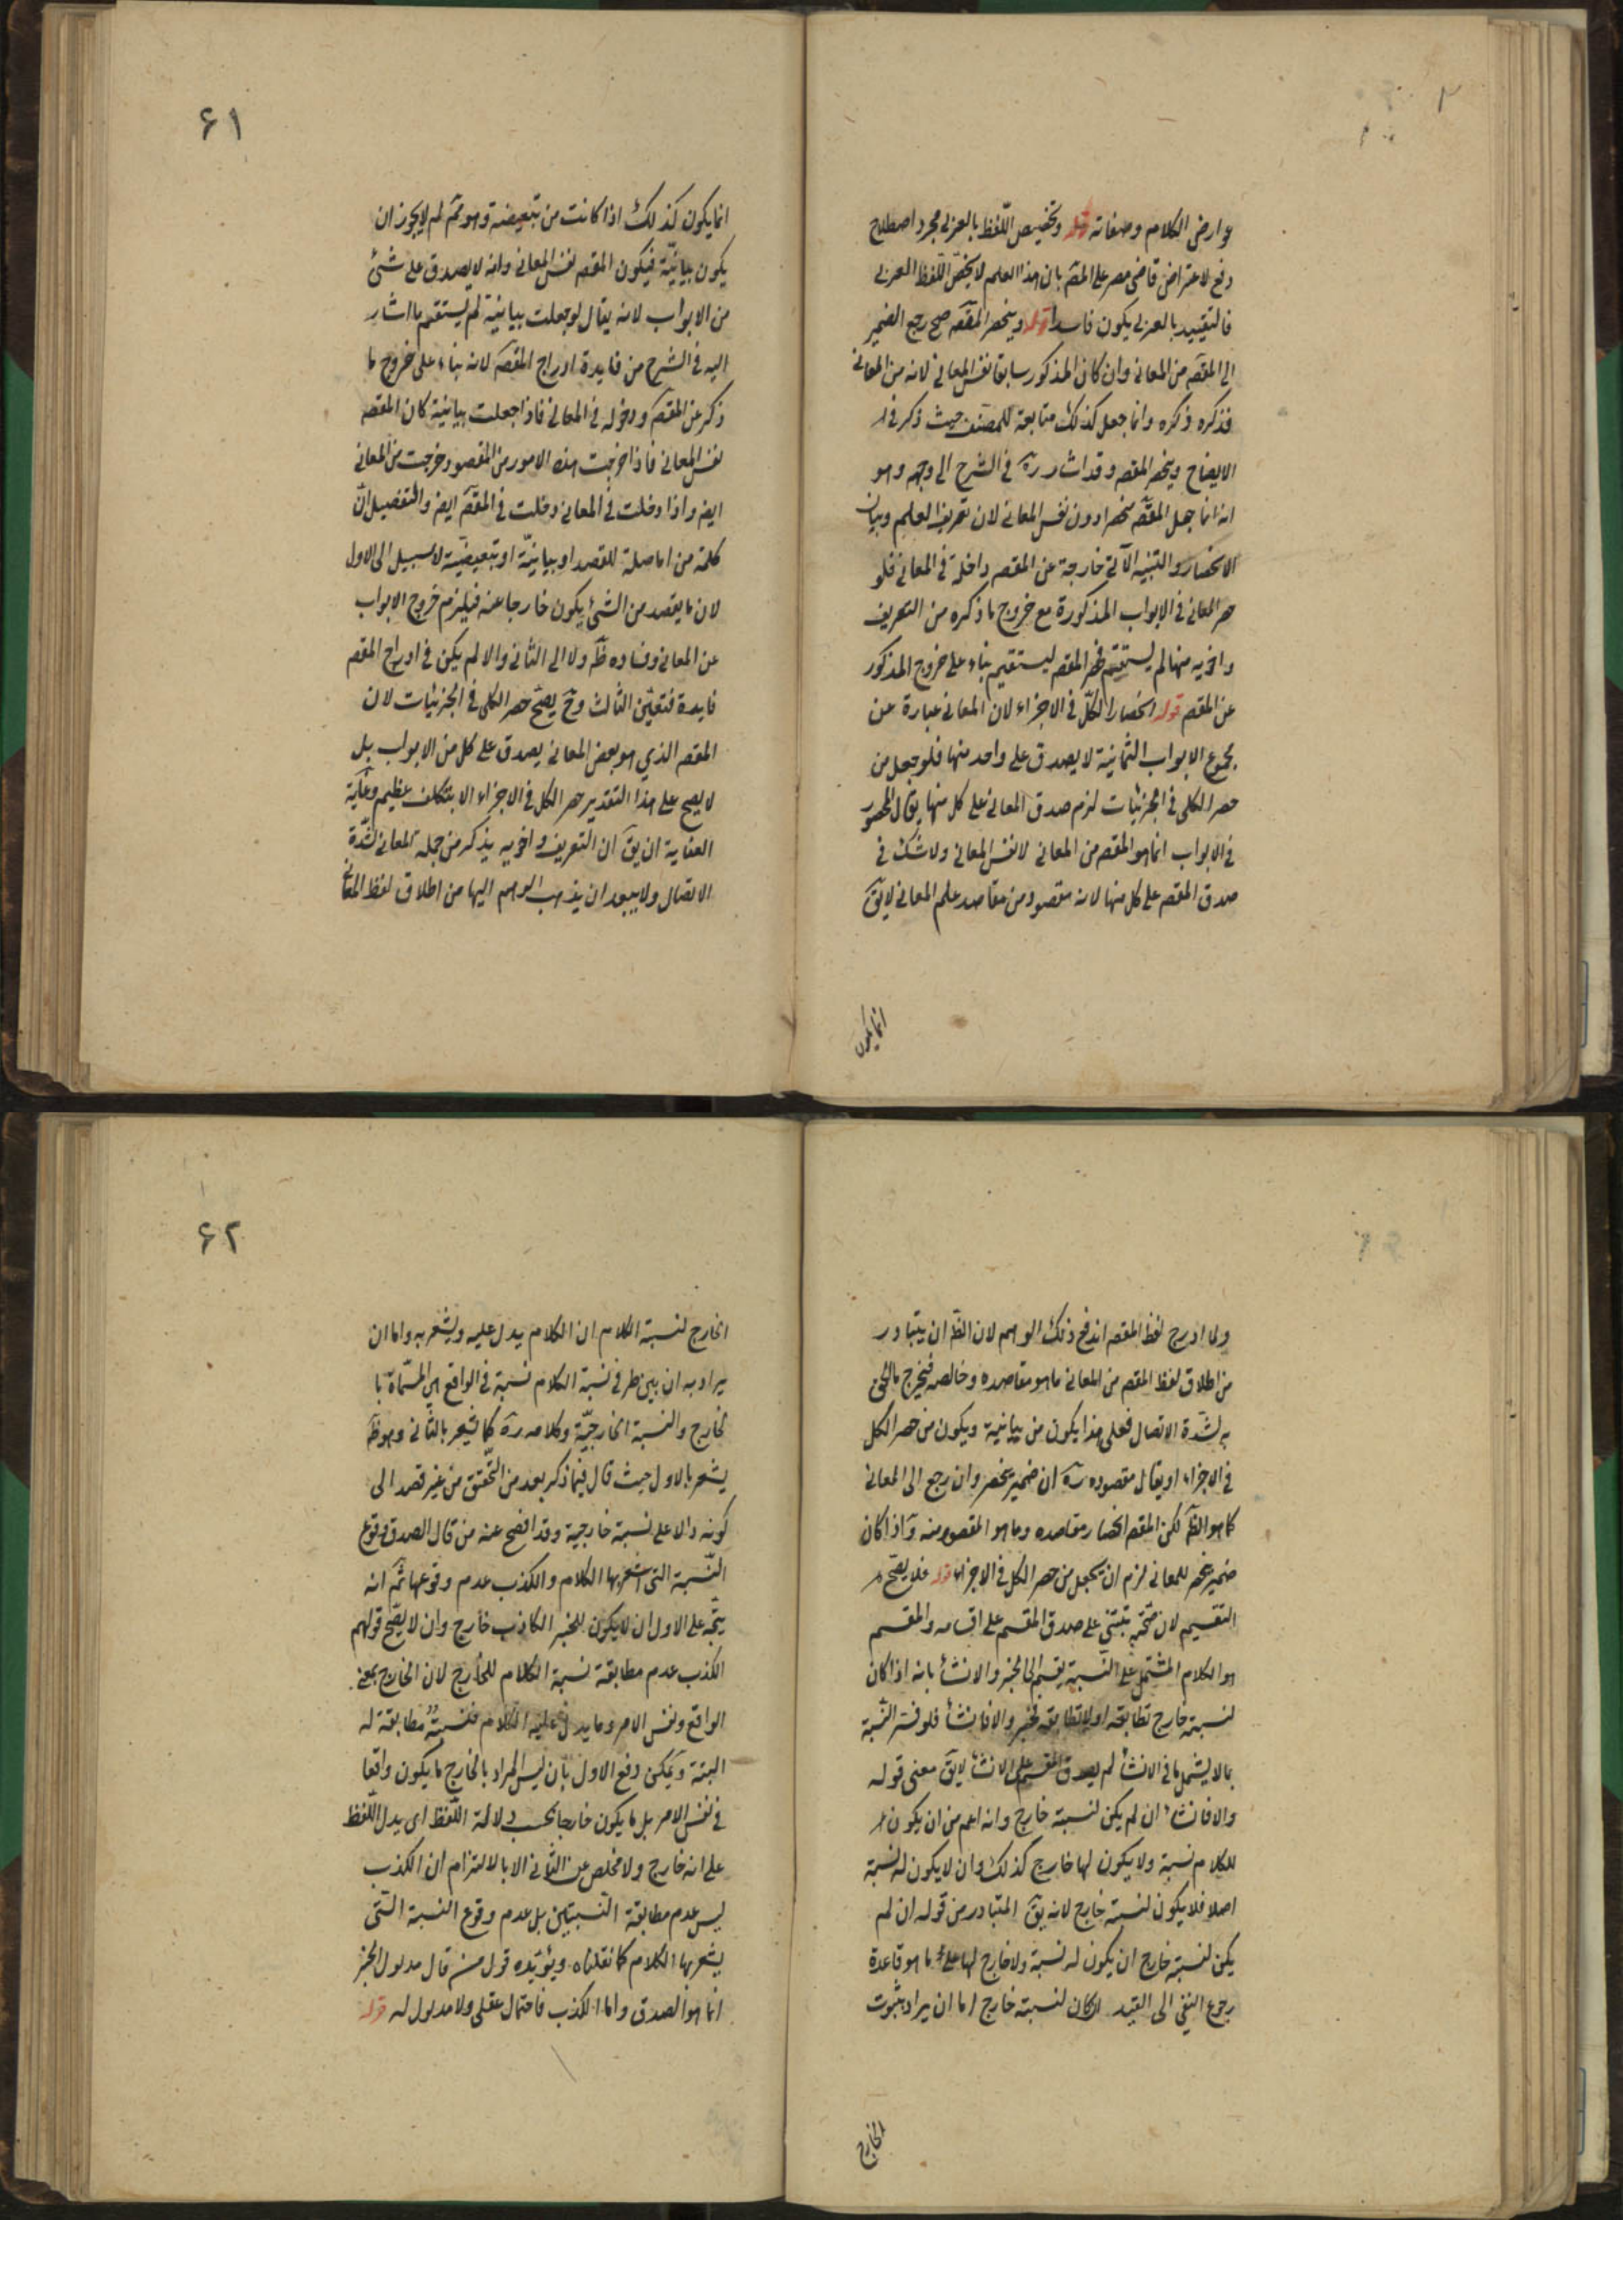 عوارض الكلام وصفاته قوله وتخصيص اللّفظ بالعربى مجرد اصطلاح
دفع لاعتراض قاضى مصر على المصّ بان هذا العلم لا يخصّ اللّفظ العربى
فالتقييد بالعربى يكون فاسدا قوله وينحصر المقصّ صح رجع الضمير
الى المقصّ من المعانى وان كان المذكور سابقا نفس المعانى لانه من المعانى
فذكره ذكره وانما جعل كذلك متابعة للمصنف حيث ذكر فى
الايضاح وينحصر المقصه وقد اشار رهّ فى الشرح الى وجهه وهو
انه انما جعل المقصّ منحصرا دون نفس المعانى لان تعريف العلم وبيان
الانحصار والتنبيه الآتى خارجة عن المقصه داخلة فى المعانى فلو
حصر المعانى فى الابواب المذكورة مع خروج ما ذكره من التعريف
واخويه منها لم يستقم فحصر المقصه ليستقيم بناء على خروج المذكور
عن المقصه قوله انحصار الكلّ فى الاجزاء لان المعانى عبارة عن
مجموع الابواب الثمانية لا يصدق على واحد منها فلو جعل من
حصر الكلى فى الجزئيات لزم صدق المعانى على كل منها يقال المحصور
فى الابواب انما هو المقصه من المعانى لا نفس المعانى ولا شك فى
صدق المقصه على كل منها لانه مقصود من مقاصد علم المعانى لا يقّ
انما يكون
۶۱
انما يكون كذلك اذا كانت من تبعيضية وهو ممّ لم لا يجوز ان
يكون بيانيّة فيكون المقصه نفس المعانى وانه لا يصدق على شئ
من الابواب لانه يقال لو جعلت بيانية لم يستقم ما اشار
اليه فى الشرح من فايدة ادراج المقصّ لانه بناء على خروج ما
ذكر عن المقصّ ودخوله فى المعانى فاذا جعلت بيانية كان المقصه
نفس المعانى فاذا خرجت هذه الامور من المقصود خرجت من المعانى
ايضه واذا دخلت فى المعانى دخلت فى المقصّ ايضه والتفضيل انّ
كلمة من اما صلة للقصد او بيانيّة او تبعيضيّة لا سبيل الى الاول
لان ما يقصد من الشئ يكون خارجا عنه فيلزم خروج الابواب
عن المعانى وفساده ظّه ولا الى الثانى والا لم يكن فى ادراج المقصه
فايدة فتعيّن الثالث وحّ يصحّ حصر الكلى فى الجزئيات لان
المقصه الذي هو بعض المعانى يصدق على كل من الابواب بل
لا يصح على هذا التقدير حصر الكل فى الاجزاء الا بتكلف عظيم وغاية
العناية ان يقّ ان التعريف واخويه يذكر من جملة المعانى لشدّة
الاتصال ولا يبعد ان يذهب الوهم اليها من اطلاق لفظ المعانى
ولما ادرج لفظ المقصه اندفع ذلك الوهم لان الظه ان يتبادر
من اطلاق لفظ المقصه من المعانى ما هو مقاصده وخالصه فيخرج ما الحق
به لشدّة الاتصال فعلى هذا يكون من بيانية ويكون من حصر الكل
فى الاجزاء او يقال مقصوده رهّ ان ضمير ينحصر وان رجع الى المعانى
كما هو الظّه لكن المقصه انحصار مقاصده وما هو المقصود منه واذا كان
ضمير ينحصر للمعانى لزم ان يجعل من حصر الكل فى الاجزاء قوله فلا يصّح
التقسيم لان صحّته تبتنى على صدق المقسم على اقسامه والمقسم
هو الكلام المشتمل على النّسبة يقسم الى الخبر والانشأ بانه اذا كان
لنسبته خارج تطابقه او لا تطابقه فخبر والا فانشأ فلو فسّر النّسبة
بما لا يشمل ما فى الانشأ لم يصدق المقسم على الانشأ لا يقّ معنى قوله
والا فانشاء ان لم يكن لنسبته خارج وانه اعم من ان يكون
للكلام نسبة ولا يكون لها خارج كذلك وان لا يكون له نسبة
اصلا فلا يكون لنسبته خارج لانه يقّ المتبادر من قوله ان لم
يكن لنسبته خارج ان يكون له نسبة ولا خارج لها على ما هو قاعدة
رجوع النفى الى القيد ان كان لنسبته خارج اما ان يراد بثبوت
الخارج
۶۲
الخارج لنسبة الكلام ان الكلام يدل عليه ويشعر به واما ان
يراد به ان بين طرفى نسبة الكلام نسبة فى الواقع هى المسمّاة با
لخارج والنسبة الخارجيّة وكلامه رهّ كما يشعر بالثانى وهو ظّه
يشعر بالاول حيث قال فيما ذكر بعد من التّحقق من غير قصد الى
كونه دالا على نسبة خارجية وقد افصح عنه من قال الصدق وقوع
النّسبة التى اشعر بها الكلام والكذب عدم وقوعها ثّم انه
يتّجه على الاول ان لا يكون للخبر الكاذب خارج وان لا يصّح قولهم
الكذب عدم مطابقة نسبة الكلام للخارج لان الخارج بمعنى
الواقع ونفس الامر وما يدل عليه الكلام فنسبته مطابقة له
البتة ويمكن دفع الاول بأن ليس المراد بالخارج ما يكون واقعا
فى نفس الامر بل ما يكون خارجا بحسب دلالة اللّفظ اى يدل اللّفظ
على انه خارج ولا مخلص عن الثّانى الا بالالتزام ان الكذب
ليس عدم مطابقة النّسبتين بل عدم وقوع النسبة التّى
يشعر بها الكلام كما نقلناه ويؤيّده قول من قال مدلول الخبر
انما هو الصدق واما الكذب فاحتمال عقلى ولا مدلول له قوله